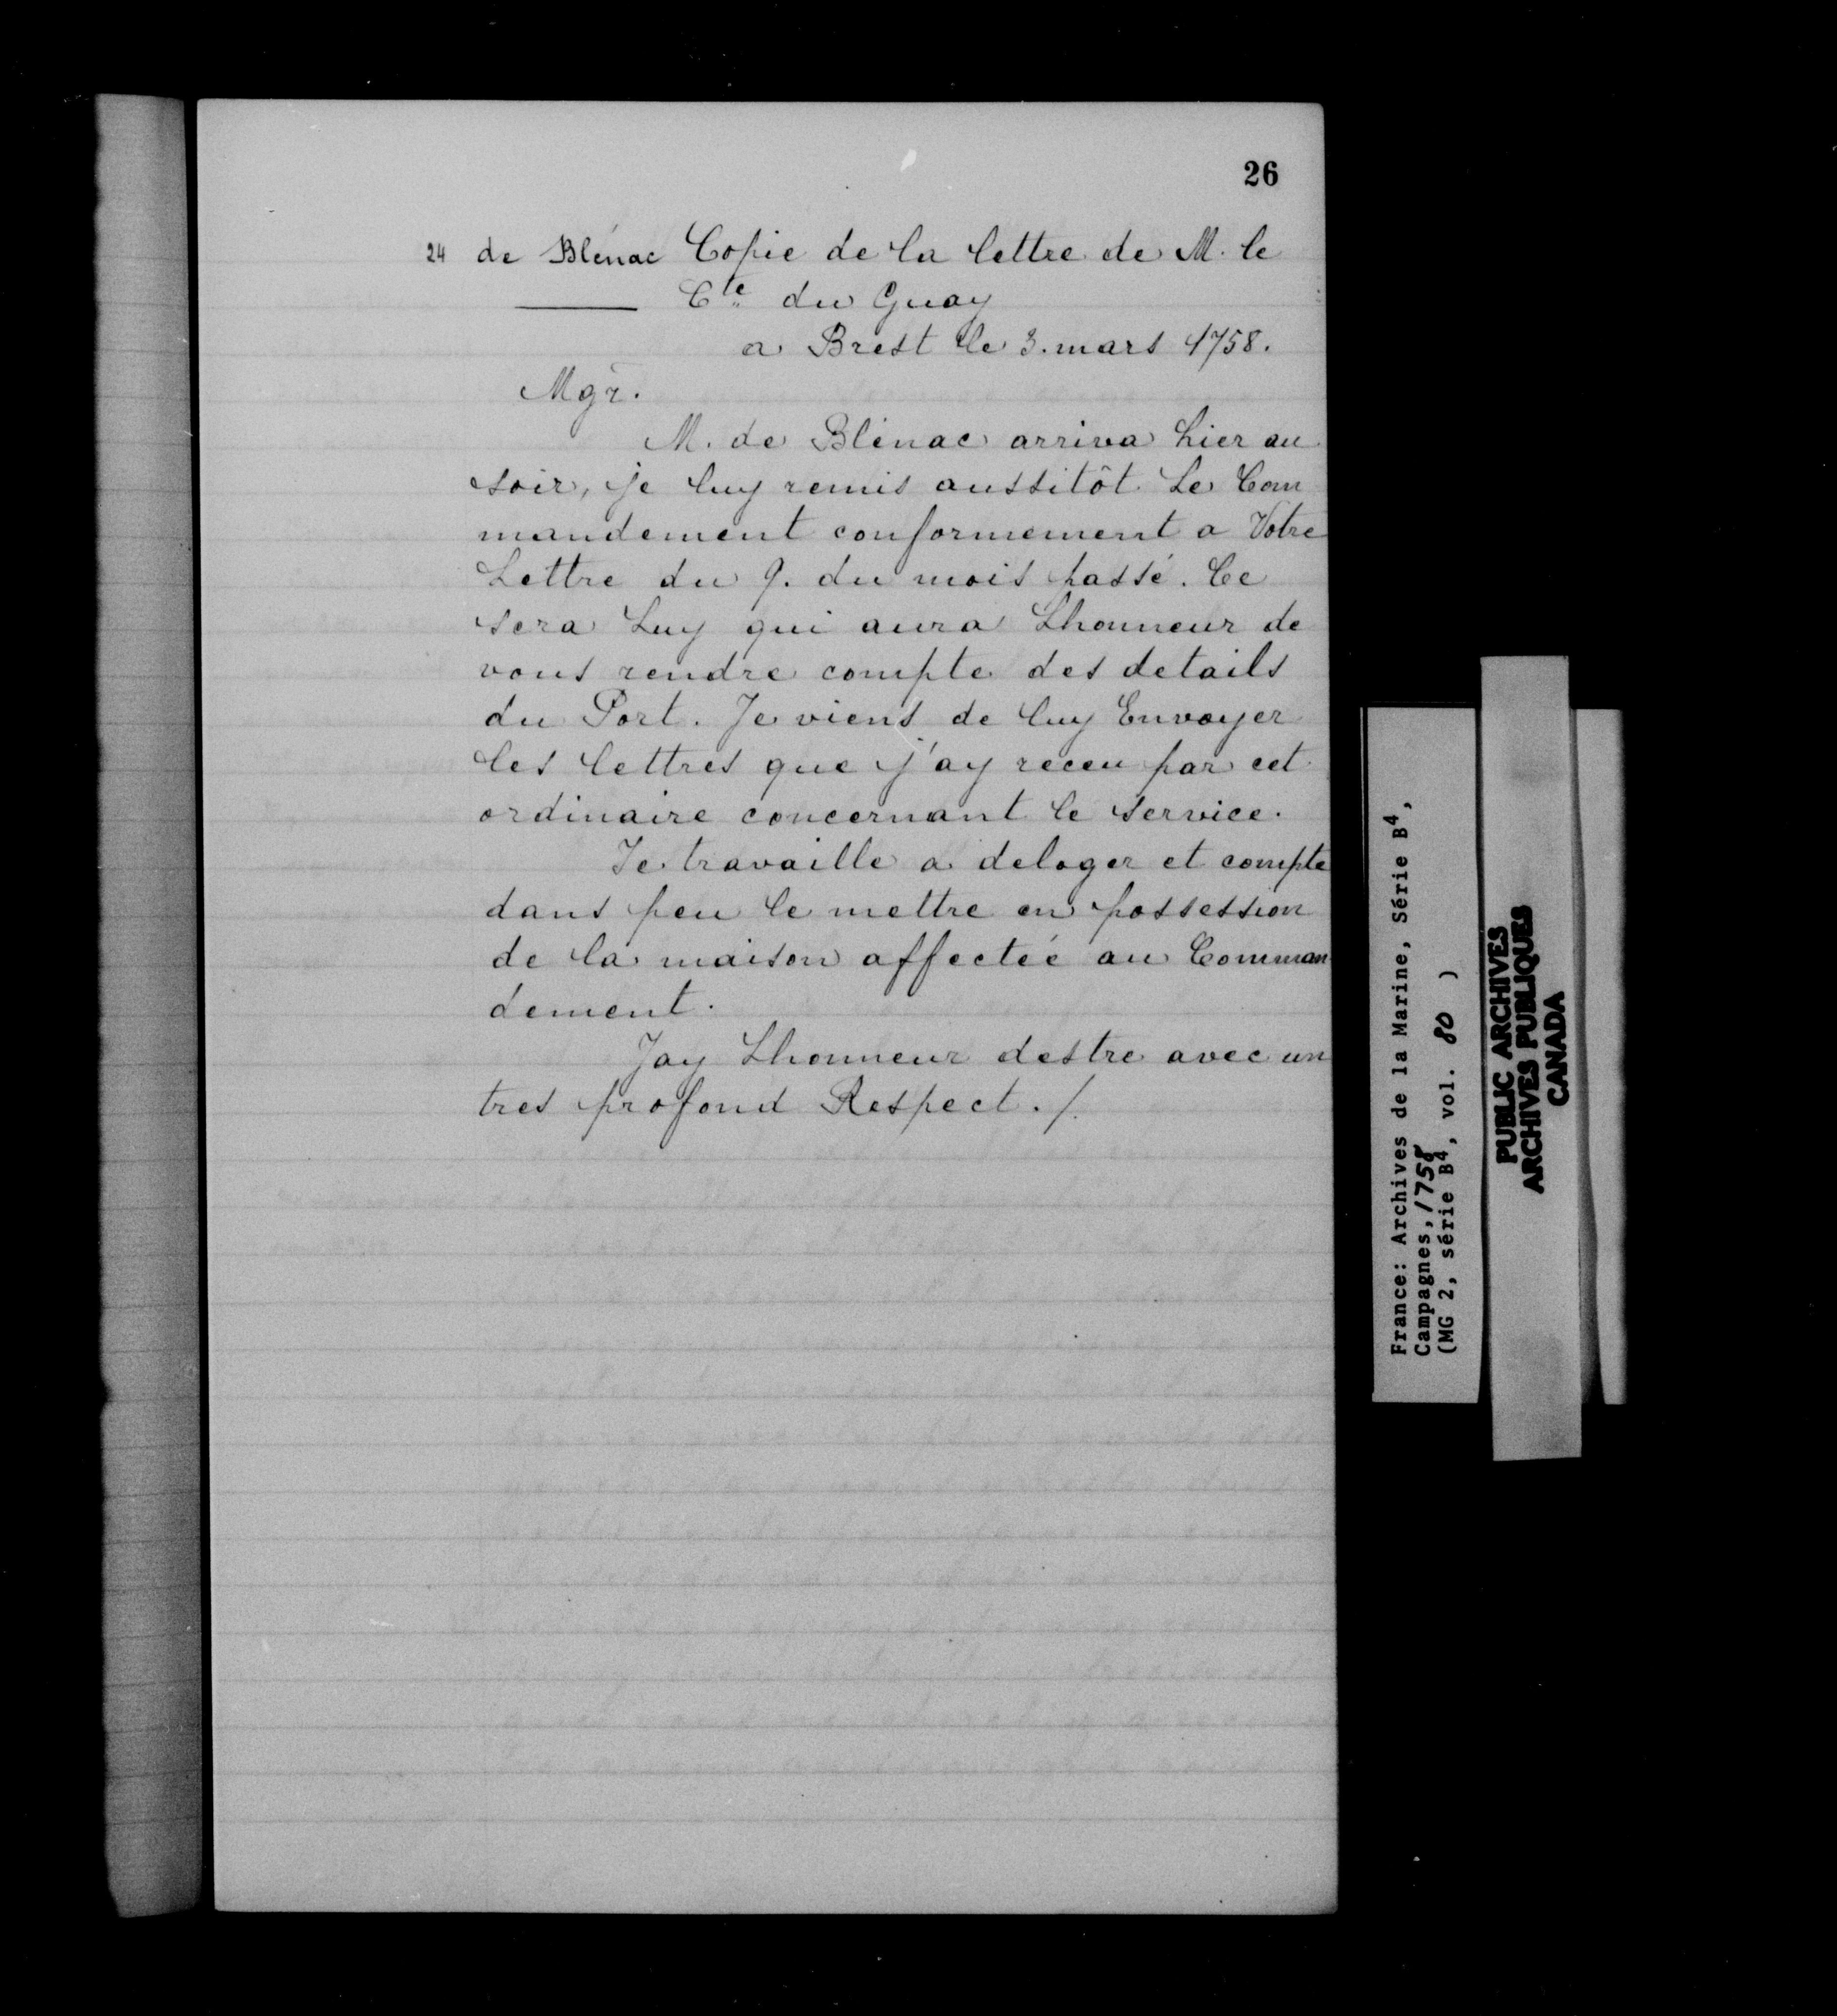 26
24 de Blénac Copie de la lettre de M. le
Cte du Guay
a Brest le 3. mars 1758.
Mgr.
M. de Blénac arriva hier au
soir, je luy remis aussitôt Le Com
mandement conformement a Votre
Lettre du 9. du mois passé. Ce
sera Luy qui aura Lhonneur de
vous rendre compte des details
du Port. Je viens de luy Envoyer
les lettres que j'ay receu par cet
ordinaire concernant le service.
Je travaille a deloger et compte
dans peu le mettre en possession
de la maison affectée au Comman
dement.
Jay Lhonneur destre avec un
tres profond Respect ./.
France: Archives de la Marine, Série B4,
Campagnes, 1758
(MG 2, série B4, vol. 80 )
PUBLIC ARCHIVES
ARCHIVES PUBLIQUES
CANADA